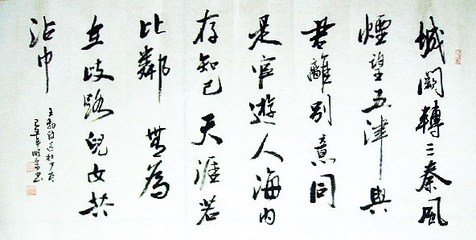 城闕輔三秦風
煙望五津與
君離別意同
是宦遊人海內
存知己天涯若
比鄰無為
在歧路兒女共
沾巾
王勃詩送杜少府